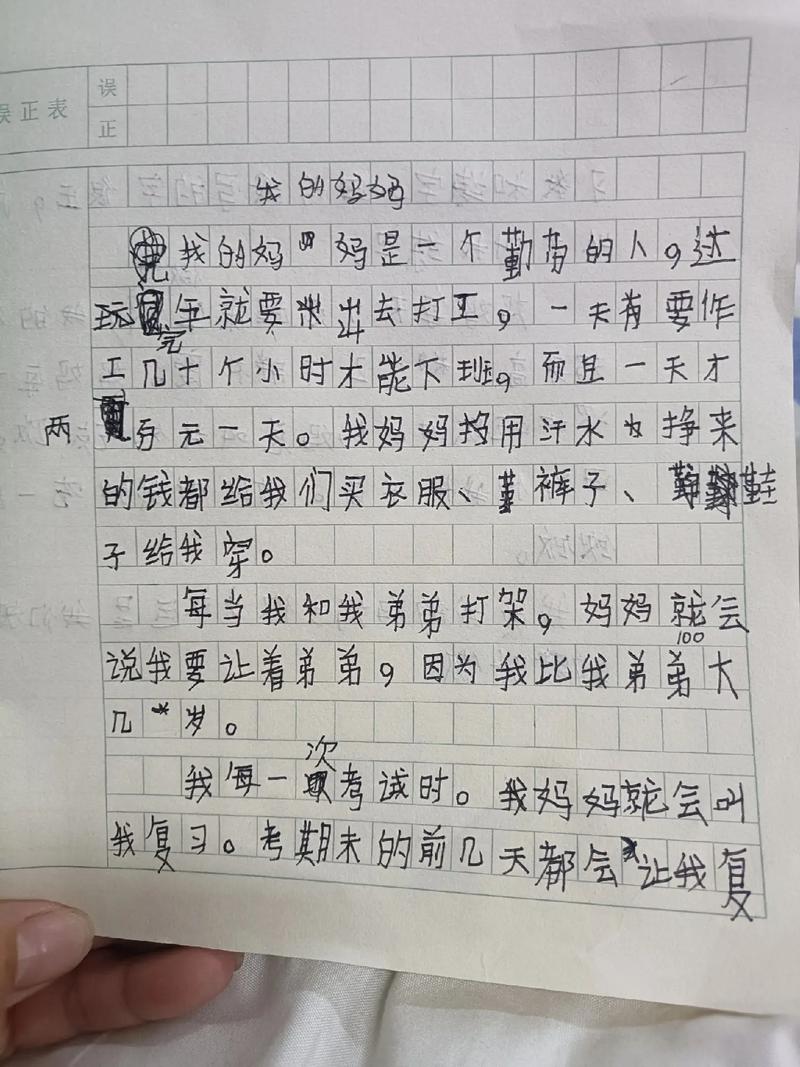 误
误正表
正
我的妈妈
我的妈妈是一个勤劳的人,过
玩完年就要出去打工,一天有要作
工几十个小时才能下班,而且一天才
两百元一天。我妈妈把用汗水为挣来
的钱都给我们买衣服、裤子、鞋
子给我穿。
每当我和我弟弟打架,妈妈就会
说我要让着弟弟,因为我比我弟弟大
100
几岁。
我每一次考试时。我妈妈就会叫
我复习。考期末的前几天都会让我复